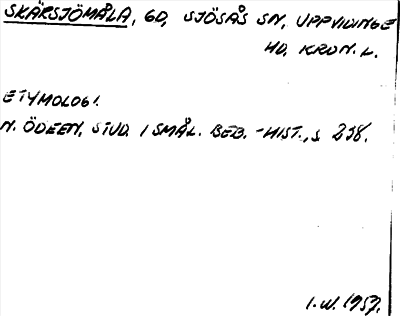 SKÄRSJÖMÅLA, GD, SJÖSÅS SN, UPPVIDINGE
HD, KRON. L.
ETYMOLOGI.
N. ÖDEEN, STUD. I SMÅL. BEB.-HIST., S 238.
I.W. 1957.